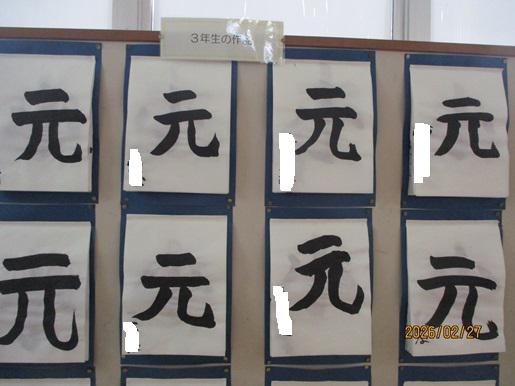 ３年生の作
元
元
元
元
元
元
元
元
2026/02/27